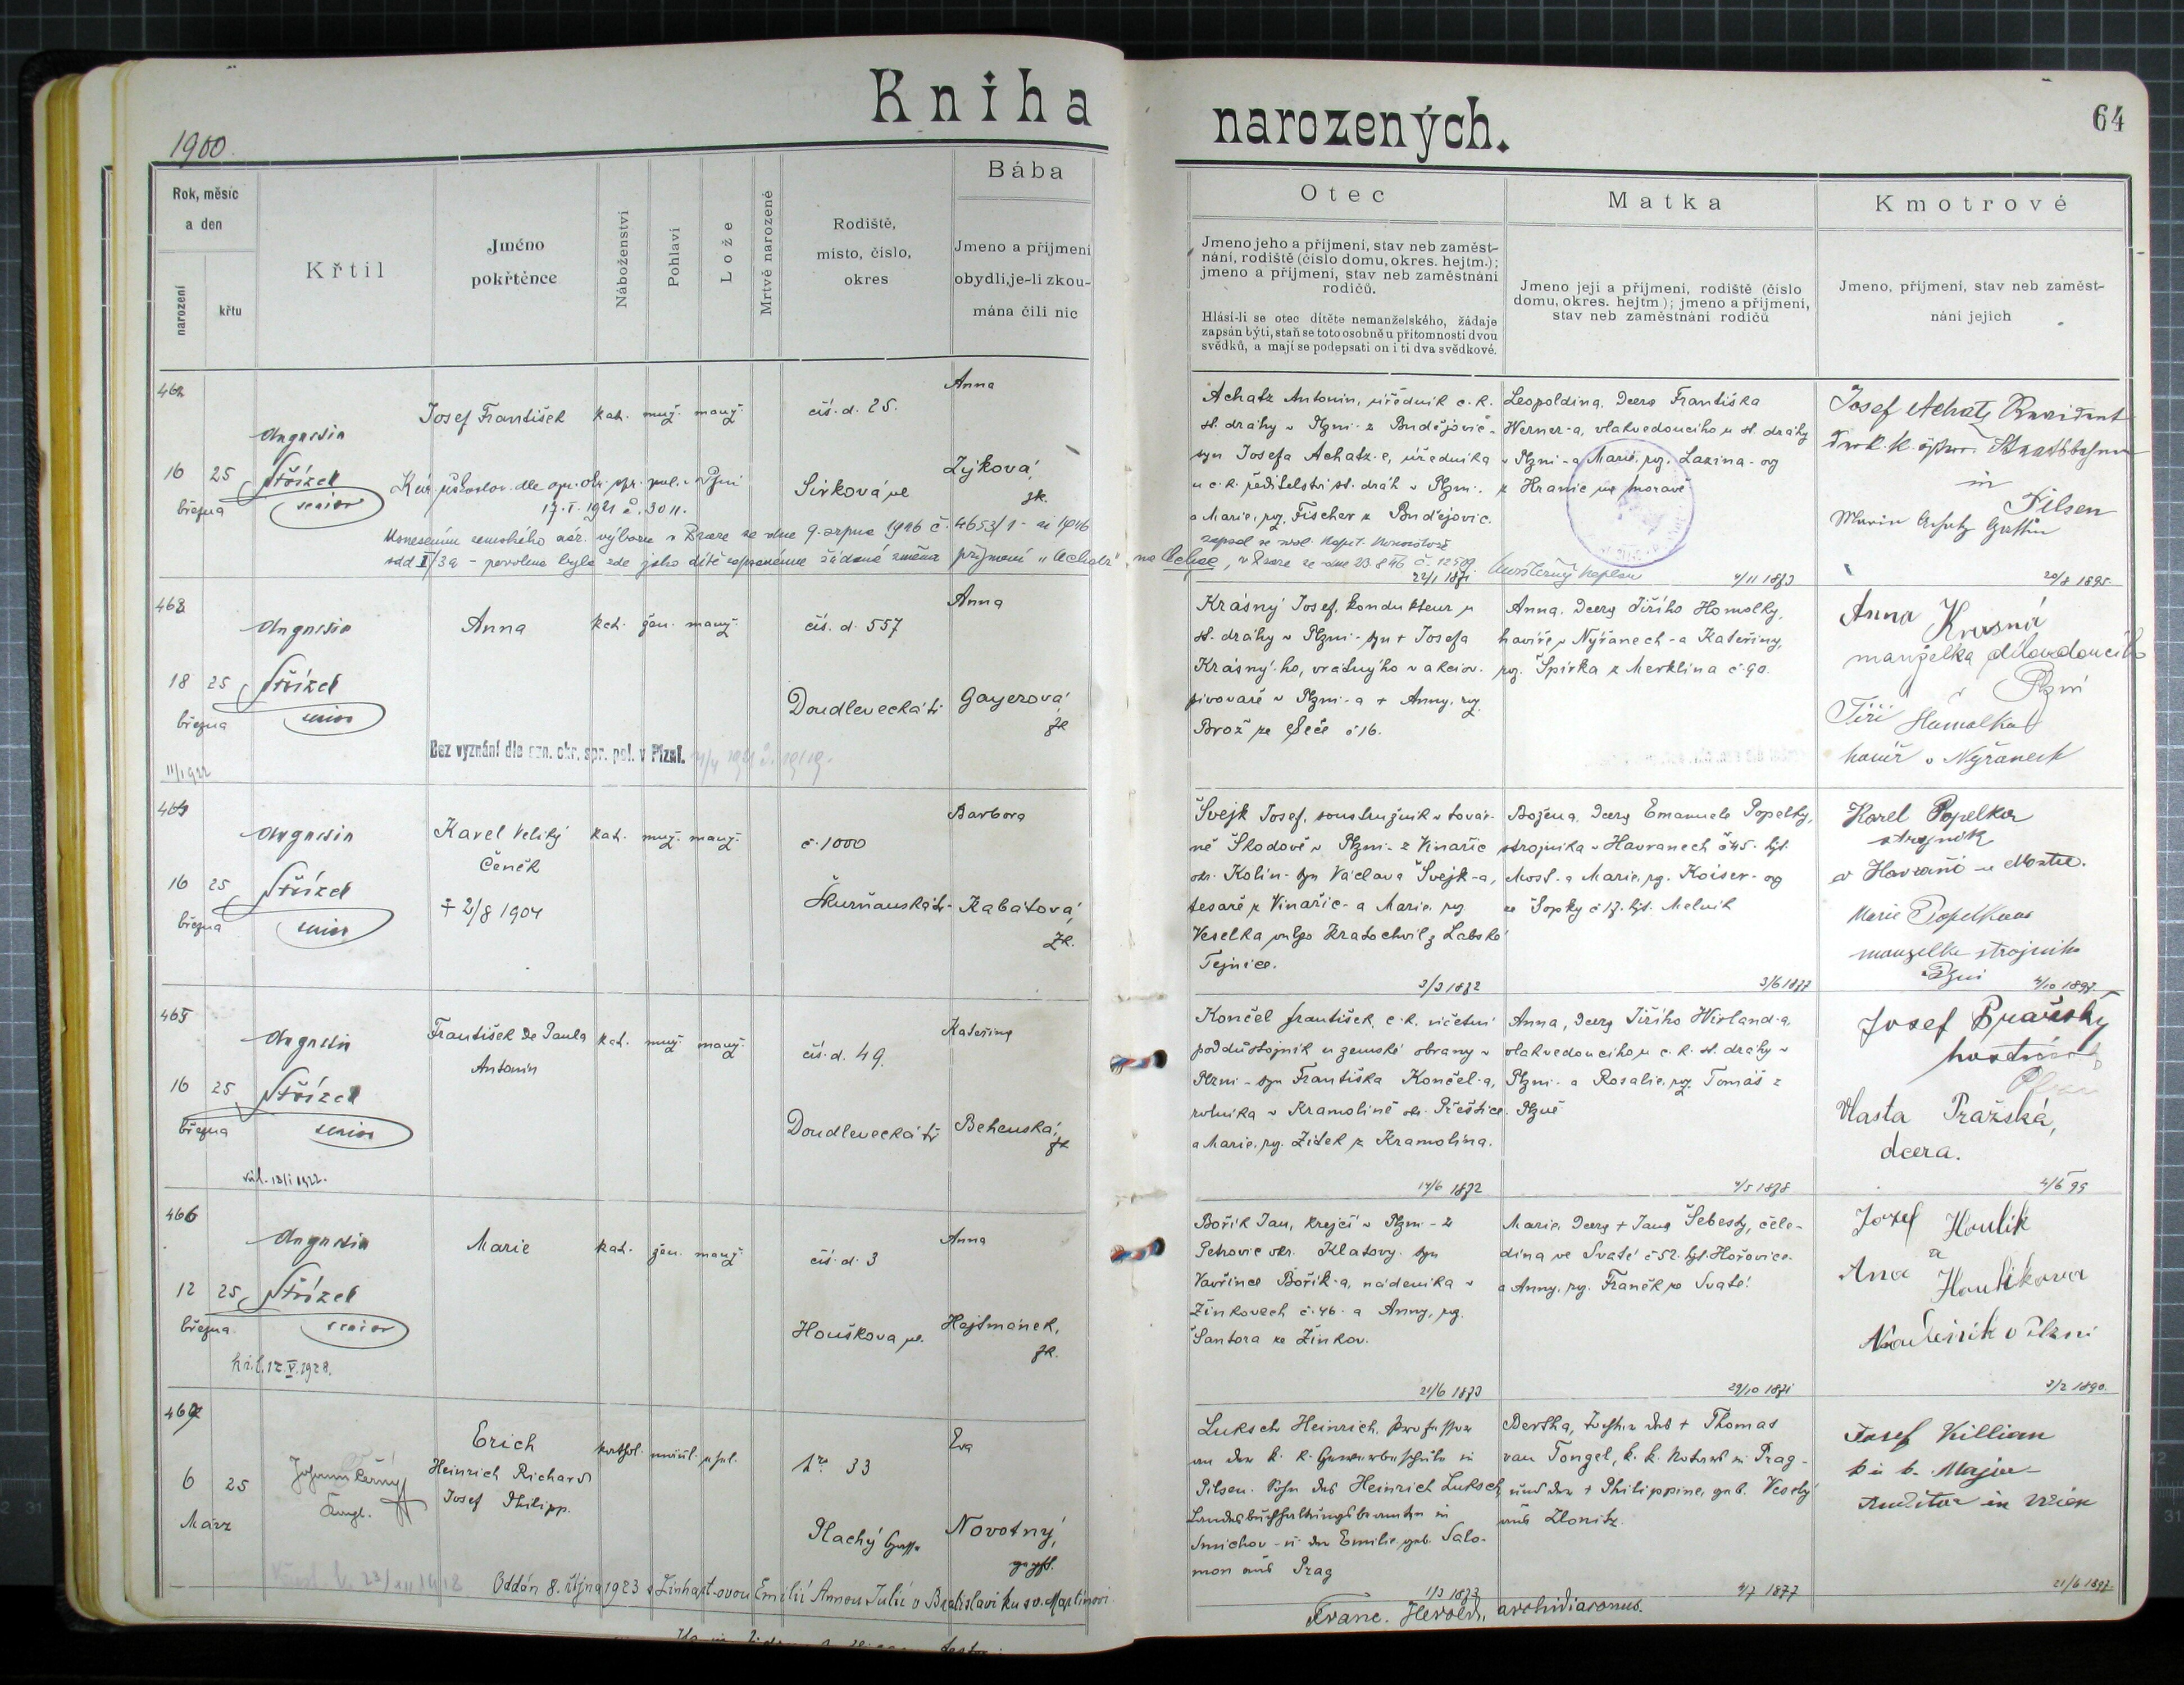 Kniha narozených.
64
1900.
Rok, měsíc
a den
narození
křtu
Křtil
Jméno
pokřtěnce
Náboženství
Pohlaví
Lože
Mrtvě narozené
Rodiště,
místo, číslo,
okres
Bába
Jmeno a příjmení
obydlí, je-li zkou-
mána čili nic
Otec
Jmeno jeho a příjmení, stav neb zaměst-
nání, rodiště (číslo domu, okres. hejtm.);
jmeno a příjmení, stav neb zaměstnání
rodičů.
Hlásí-li se otec dítěte nemanželského, žádaje
zapsán býti, staň se toto osobně u přítomnosti dvou
svědků, a mají se podepsati on i ti dva svědkové.
Matka
Jmeno její a příjmení, rodiště (číslo
domu, okres. hejtm.); jmeno a příjmení,
stav neb zaměstnání rodičů
Kmotrové
Jmeno, příjmení, stav neb zaměst-
nání jejich
462
16 25
března
Augustin
Střízek
senior
Josef František
kat. muž. manž.
čís. d. 25.
Sirková ul
Anna
Zýková,
zk.
17. I. 1921 č. 3011.
Usnesením zemského nár. výboru v Praze ze dne 9. srpna 1946 č. 4653/1- ai 1946
odd II/3a - povolena byla zde jako dítě zapsanému žádaná změna příjmení „Achatz" na
Achatz Antonín, úředník c. k.
st. dráhy v Plzni - z Budějovic -
syn Josefa Achatz-e, úředníka
u c. k. ředitelství st. drah v Plzni.
a Marie, roz. Fischer z Budějovic.
22/1 1871
Leopoldina, dcera Františka
Werner-a, vlakvedoucího u st. dráhy
v Plzni - a Marie, roz. Lazina - og
z Hranic na Moravě
4/11 1873
Josef Achatz
in
Pilsen
20/8 1895.
463
18 25
března
11/1922
Augustin
Střízek
senior
Anna
kat. žen. manž.
čís. d. 557
Doudlevecká tř
Anna
Gayerová
zk
Bez vyznání dle ozn. okr. spr. pol. v Plzni.
Krásný Josef, kondukteur u
st. dráhy v Plzni - syn + Josefa
Krásný-ho, vrátného v akciov.
pivovaře v Plzni - a + Anny, roz.
Brož ze Seče č 16.
Anna, dcera Jiřího Homolky,
havíře v Nýřanech - a Kateřiny,
roz. Špirka z Merklína č 90.
Anna Krasná
manželka
v Plzni
Jiří Homolka
havíř v Nýřanech
464
16 25
března
Augustin
Střízek
senior
Karel Veliký
Čeněk
+ 2/8 1904
kat. muž. manž.
č. 1000
Skurňanská tř.
Barbora
Kabátová,
zk.
Švejk Josef, soustružník v továr-
ně Škodově v Plzni - z Vinařic
okr. Kolín - syn Václava Švejk-a,
tesaře z Vinařic - a Marie, roz
Veselka vulgo Kratochvil z Labské
Tejnice.
3/3 1872
Božena, dcera Emanuela Popelky,
strojníka v Havranech č 45. hjt.
Most - a Marie, roz. Koiser - og
ze Šopky č 17. hjt. Melník
3/6 1877
Karel Popelka
strojník
v Havrani u Mostu.
Marie Popelkova
manzelka strojníka
Plzni
4/10 1897.
465
16 25
března
Augustin
Střízek
senior
František de Paula
Antonín
kat. muž. manž.
čís. d. 49.
Doudlevecká tř
Kateřina
Behenská,
zk
Končel František, c. k. účetní
poddůstojník u zemské obrany v
Plzni - syn Františka Končel-a,
rolníka v Kramolíně okr. Přeštice
a Marie, roz. Židek z Kramolína.
14/6 1872
Anna, dcera Jiřího Wirland-a,
vlakvedoucího u c. k. st. dráhy v
Plzni - a Rosalie, roz. Tomáš z
Plzně
4/5 1878
Josef Pražský
Vlasta Pražská,
dcera.
4/6 95
466
12 25
března
Augustin
Střízek
senior
Marie
kat. žen. manž.
čís. d. 3
Houškova ul.
Anna
Hejtmánek,
zk.
Bořík Jan, krejčí v Plzni - z
Petrovic okr. Klatovy. syn
Vavřince Bořík-a, nádeníka v
Žinkovech č. 46 - a Anny, roz.
Šantora ze Žinkov.
21/6 1873
Marie, dcera + Jana Šebesty, čele-
dína ve Svaté č 52. hjt. Hořovice.
a Anny, roz. Franěk ze Svaté!
29/10 1871
Jozef Houlik
a
Ana Houlikova
v Plzni
3/2 1890.
467
6 25
März
Johann Černý
Erich
Heinrich Richard
Josef Philipp.
kathol. männl. ehel.
Nro 33
Plachý Gasse
Eva
Novotný,
geprft.
Oddán 8. října 1923 s Linhart-ovou Emilií Annou Julií v Bratislavě ku sv. Martinovi.
Luksch Heinrich, Professor
an der k. k. Gewerbeschule in
Pilsen. Sohn des Heinrich Luksch,
Landesbuchhaltungsbeamten in
Smichov - u. der Emilie geb. Salo-
mon aus Prag
1/3 1873
Bertha, Tochter des + Thomas
van Tongel, k. k. Notars in Prag -
und der + Philippine, geb. Veselý
aus Zlonitz.
4/7 1877
Josef Killian
k u k. Major-
Auditor in Wien
21/6 1897.
Franc. Herold, archidiaconus.